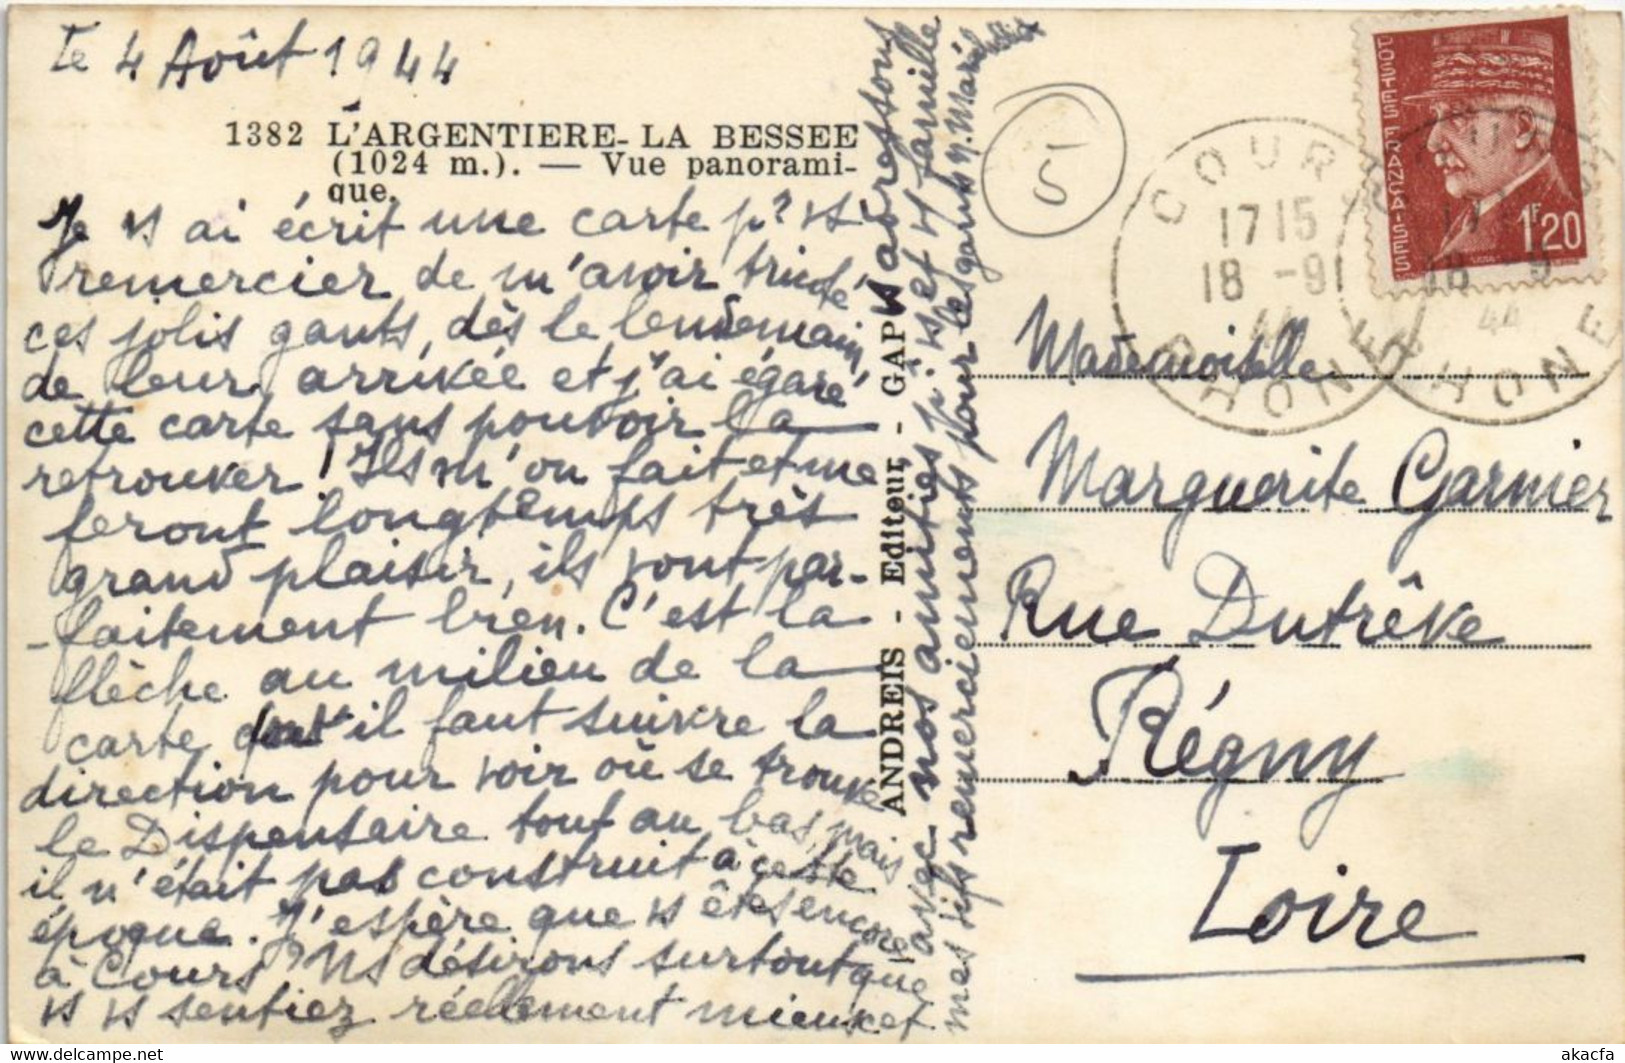 Le 4 Août 1944
1382 L'ARGENTIERE-LA BESSEE
(1024 m.). — Vue panorami-
que.
Je vs ai écrit une carte pr vs
remercier de m'avoir tricoté
ces jolis gants, dès le lendemain
de leur arrivée et j'ai égaré
cette carte sans pouvoir la
retrouver! Ils m'on fait et me
feront longtemps très
grand plaisir, ils vont par-
-faitement bien. C'est la
flèche au milieu de la
carte qu'il faut suivre la
direction pour voir où se trouve
le Dispensaire tout au bas, mais
il n'était pas construit à cette
époque. J'espère que vs êtes encore
à Cours? Ns désirons surtout que
vs vs sentiez réellement mieux et
vs adressons
avec nos amitiés pr vs et vs famille
mes vifs remerciements pour les gants
ANDREIS - Editeur - GAP
5
POSTES FRANÇAISES
1F20
COURS
17 15
18 -9
44
RHONE
COURS
17 15
18 -9
44
RHONE
Mademoiselle
Marguerite Garnier
Rue Dutrêve
Régny
Loire
akacfa
delcampe.net